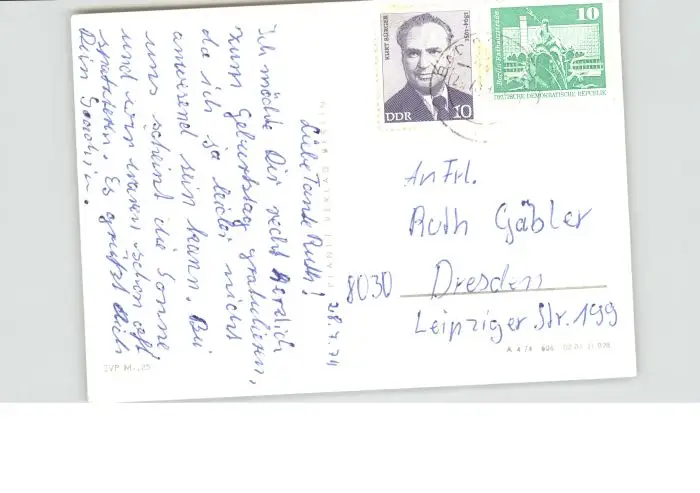 Liebe Tante Ruth!
28.7.74
Ich möchte Dir recht herzlich
zum Geburtstag gratulieren,
da ich ja leider nicht
anwesend sein kann. Bei
uns scheint die Sonne
und wir waren schon oft
spazieren. Es grüßt Dich
Dein Joachim.
KURT BÜRGER
1894-1951
DDR
10
10
DEUTSCHE DEMOKRATISCHE REPUBLIK
An Frl.
Ruth Gäbler
8030 Dresden
Leipziger. Str. 199